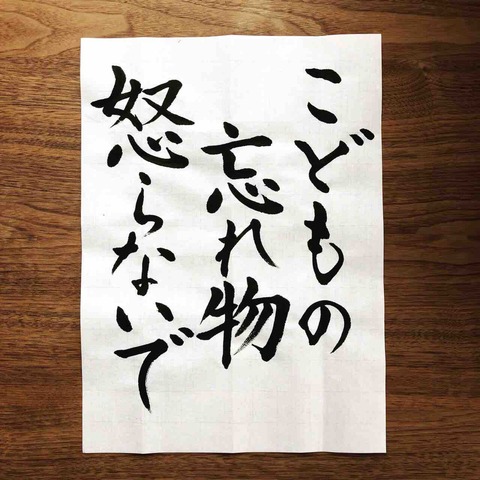 こどもの
忘れ物
怒らないで